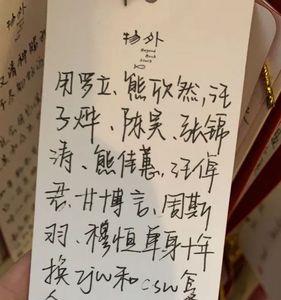 物外
Beyond
Book
Store
用罗立、熊欣然,汪
子烨、陈昊、张锦
清、熊佳蕙,汪倬
君、甘博言、周斯
羽、穆恒单身十年
换zjw和csw